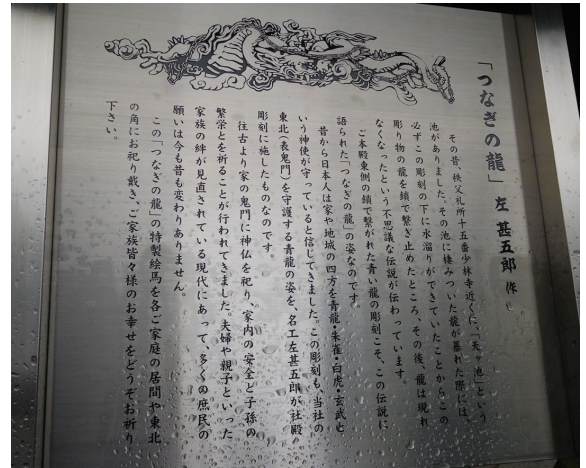 「つなぎの龍」 左 甚五郎 作
その昔 秩父札所十五番少林寺近くに、「天ヶ池」という
池がありました。その池に棲みついた龍が暴れた際には、
必ずこの彫刻の下に水溜りができていたことからこの
彫り物の龍を鎖で繋ぎ止めたところ、その後、龍は現れ
なくなったという不思議な伝説が伝わっています。
ご本殿東側の鎖で繋がれた青い龍の彫刻こそ、この伝説に
語られた「つなぎの龍」の姿なのです。
昔から日本人は家や地域の四方を青龍・朱雀・白虎・玄武と
いう神使が守っていると信じてきました。この彫刻も、当社の
東北(表鬼門)を守護する青龍の姿を、名工左甚五郎が社殿
彫刻に施したものなのです。
往古より家の鬼門に神仏を祀り、家内の安全と子孫の
繁栄とを祈ることが行われてきました。夫婦や親子といった
家族の絆が見直されている現代にあって、多くの庶民の
願いは今も昔も変わりありません。
この「つなぎの龍」の特製絵馬を各ご家庭の居間や東北
の角にお祀り戴き、ご家族皆々様のお幸せをどうぞお祈り
下さい。